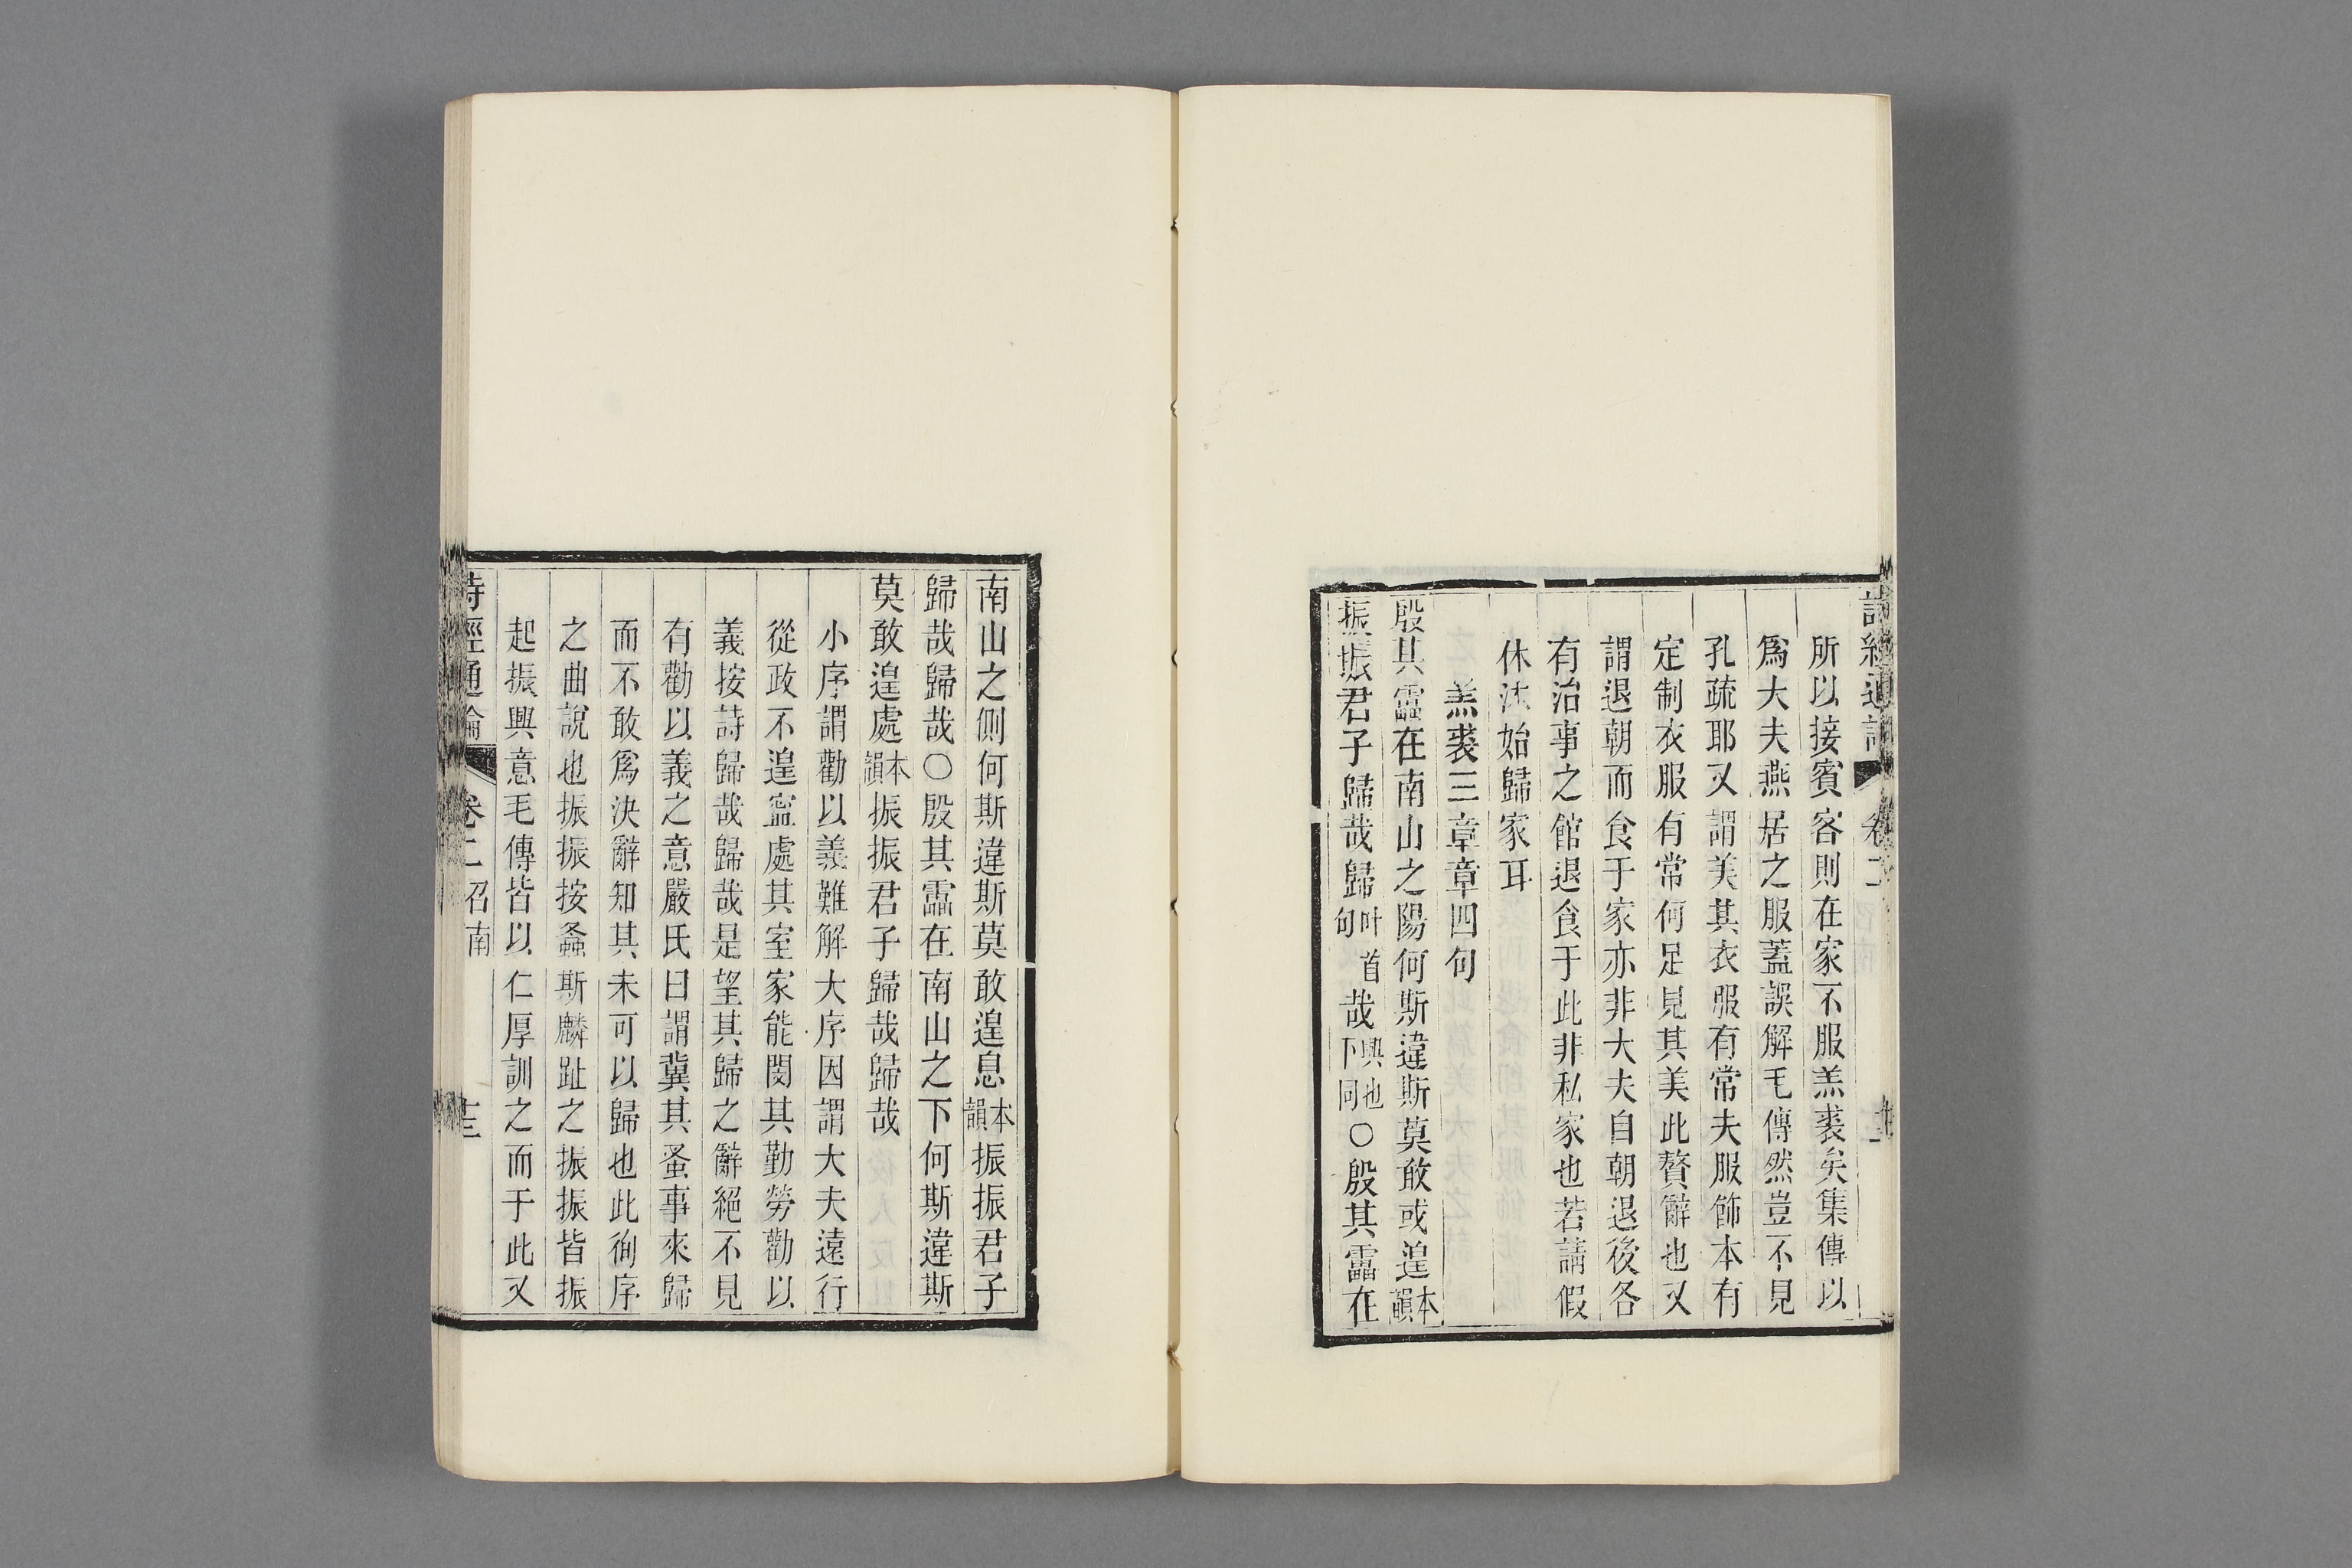 詩經通論 卷二
所以接賓客則在家不服羔裘矣集傳以
爲大夫燕居之服蓋誤解毛傳然豈不見
孔疏耶又謂美其衣服有常夫服飾本有
定制衣服有常何足見其美此贅辭也又
謂退朝而食于家亦非大夫自朝退後各
有治事之館退食于此非私家也若請假
休沐始歸家耳
羔裘三章章四句
殷其靁在南山之陽何斯違斯莫敢或遑本韻
振振君子歸哉歸叶首句哉興也下同○殷其靁在
南山之側何斯違斯莫敢遑息本韻振振君子
歸哉歸哉○殷其靁在南山之下何斯違斯
莫敢遑處本韻振振君子歸哉歸哉
小序謂勸以義難解大序因謂大夫遠行
從政不遑寍處其室家能閔其勤勞勸以
義按詩歸哉歸哉是望其歸之辭絕不見
有勸以義之意嚴氏曰謂冀其蚤事來歸
而不敢爲決辭知其未可以歸也此徇序
之曲說也振振按螽斯麟趾之振振皆振
起振興意毛傳皆以仁厚訓之而于此又
詩經通論 卷二 召南 十三